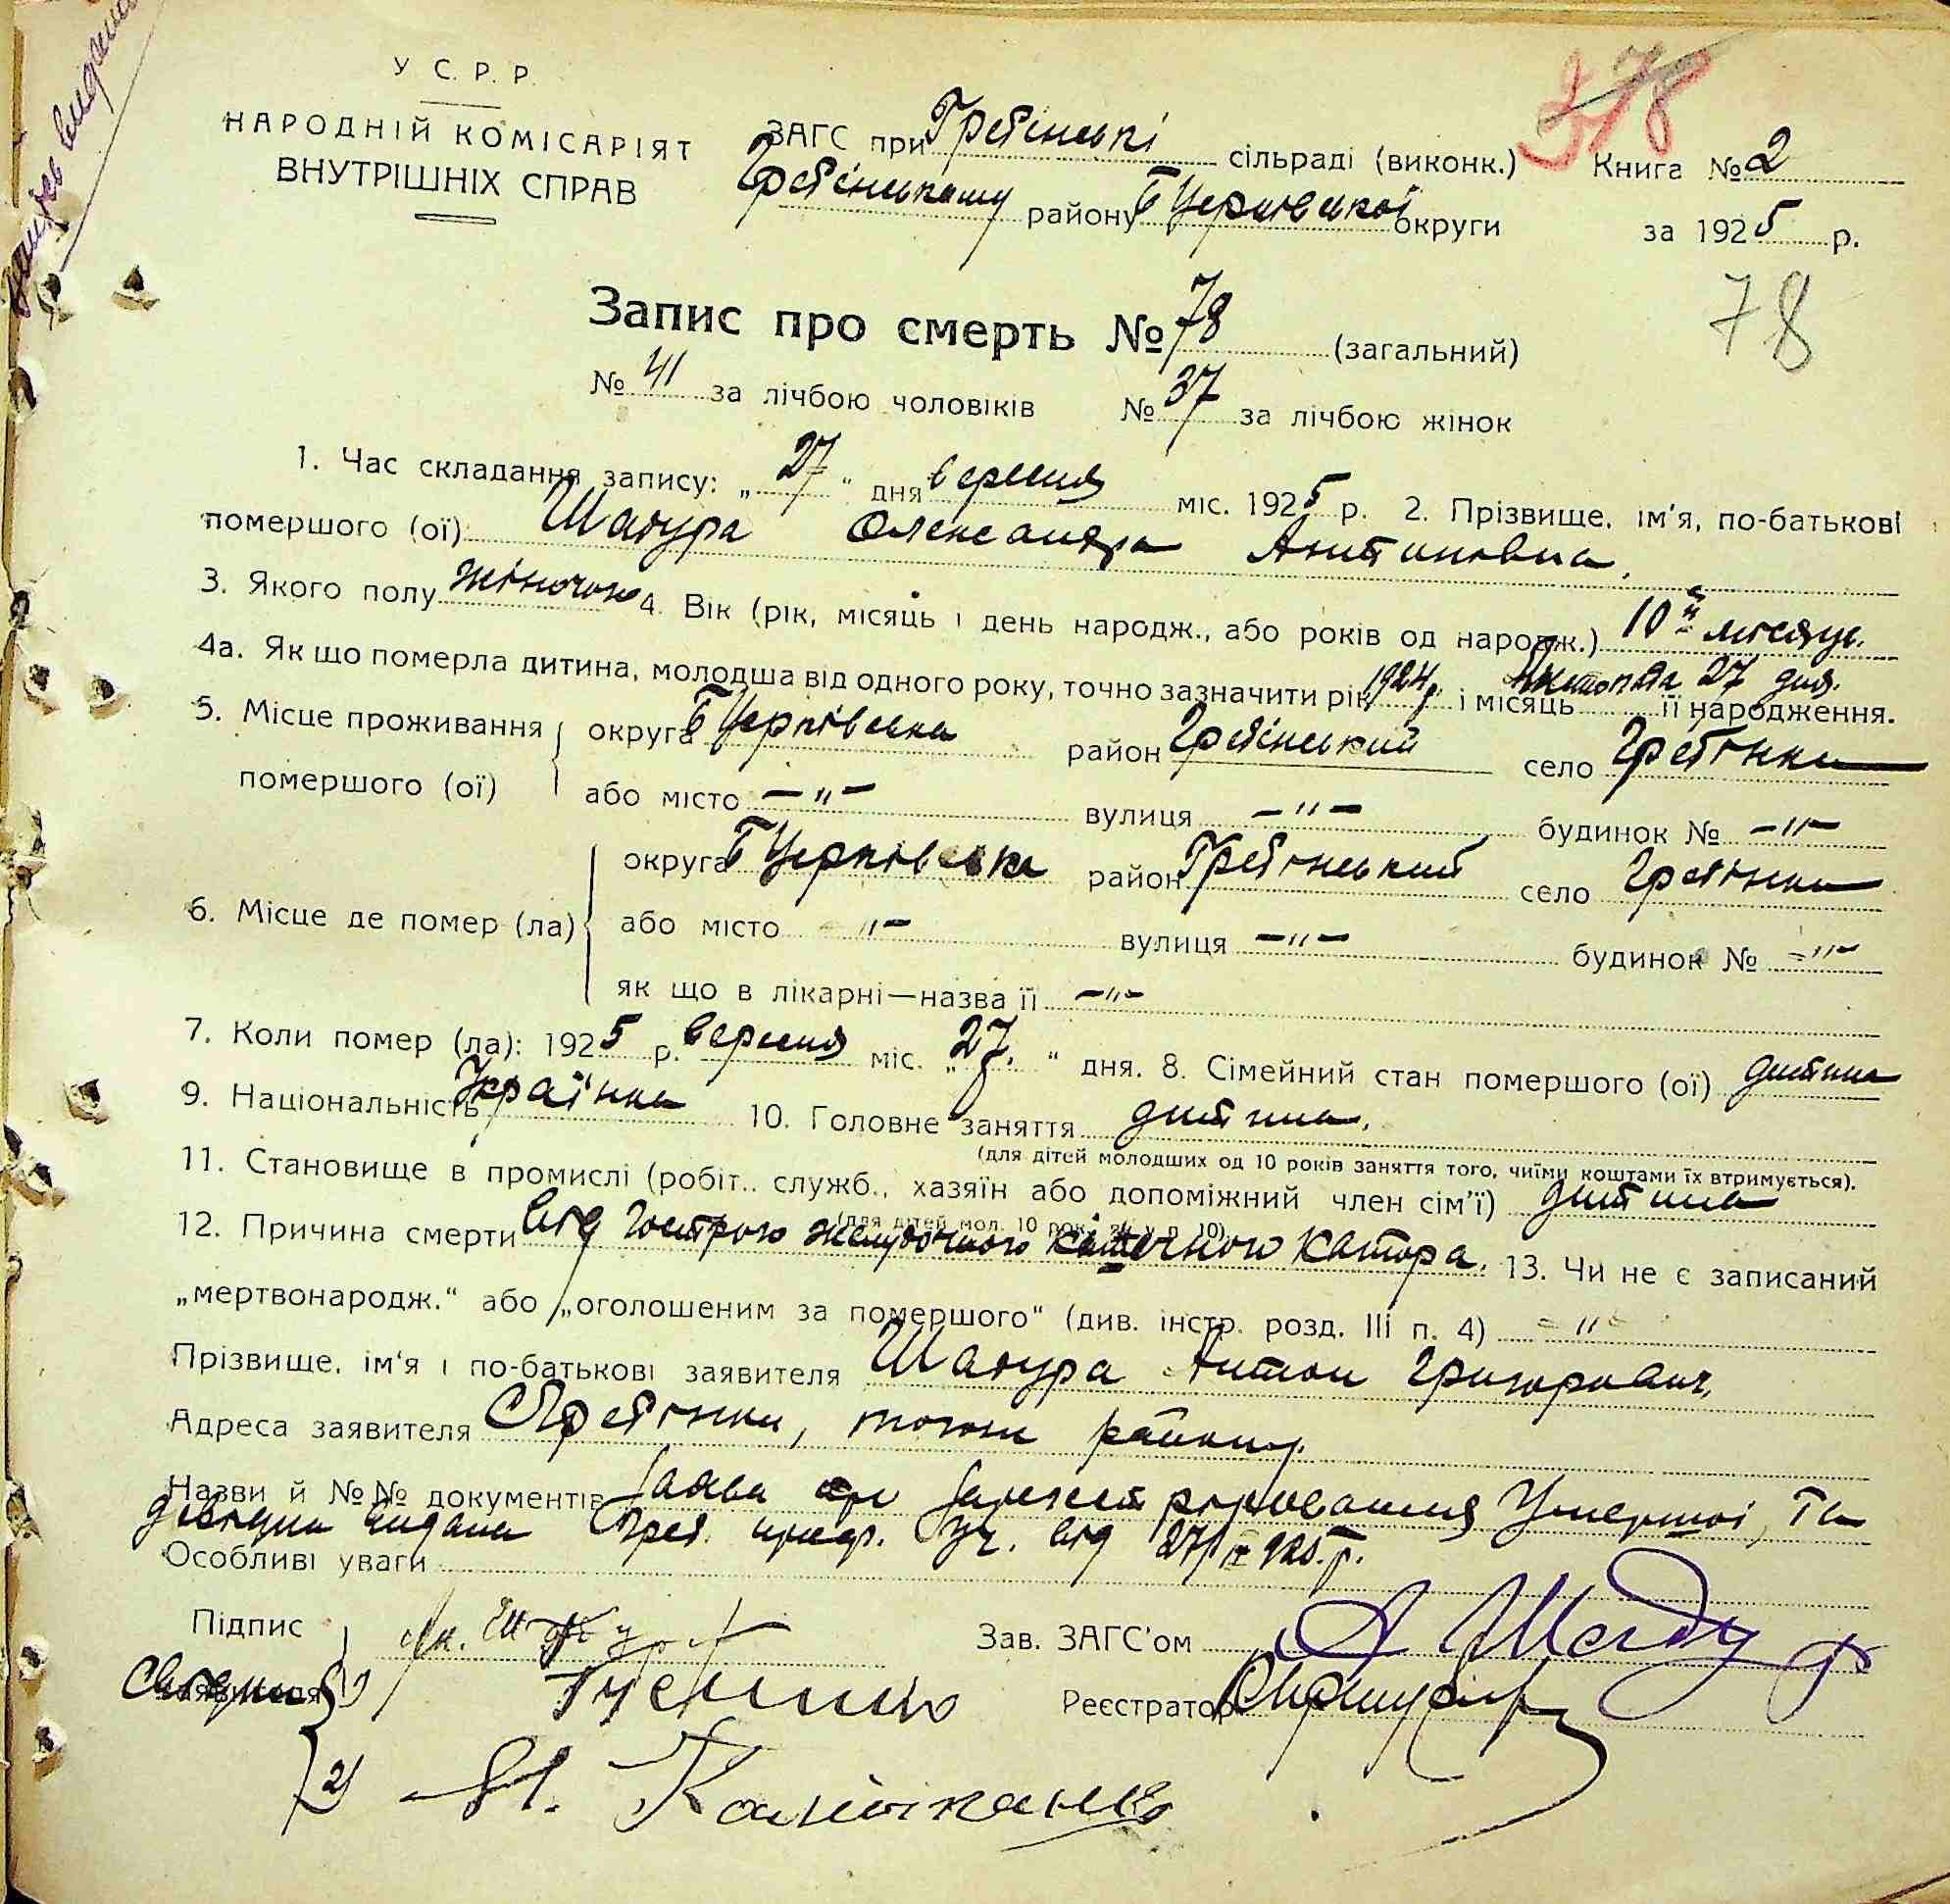 У С. Р. Р.
НАРОДНІЙ КОМІСАРІЯТ
ВНУТРІШНІХ СПРАВ
ЗАГС при Гребінські сільраді (виконк.)
Гребінському району Б Церківської округи
378
Книга № 2
за 1925 р.
78
Запис про смерть № 78 (загальний)
№ 41 за лічбою чоловіків № 37 за лічбою жінок
1. Час складання запису: „27“ дня вересня міс. 1925 р. 2. Прізвище, ім'я, по-батькові
помершого (ої) Шатура Олександра Антоновна.
3. Якого полу жіночого 4. Вік (рік, місяць і день народж., або років од народж.) 10 місяц.
4а. Як що померла дитина, молодша від одного року, точно зазначити рік 1924 р. і місяць 27 дня. її народження.
5. Місце проживання помершого (ої) округа Б Церківська район Гребінський село Гребінки
або місто -"- вулиця -"- будинок № -"-
6. Місце де помер (ла) округа Б Церківська район Гребінський село Гребінки
або місто "- вулиця -"- будинок № -"-
як що в лікарні—назва її -"-
7. Коли помер (ла): 1925 р. вересня міс. „27.“ дня. 8. Сімейний стан помершого (ої) дитина
9. Національність Українка 10. Головне заняття дитина.
(для дітей молодших од 10 років заняття того, чиїми коштами їх втримується).
11. Становище в промислі (робіт., служб., хазяїн або допоміжний член сім'ї) дитина
(для дітей мол. 10 рок. як у п. 10)
12. Причина смерти від гострого желудочного кишечного катара. 13. Чи не є записаний
„мертвонародж.“ або „оголошеним за помершого“ (див. інстр. розд. III п. 4) -"-
Прізвище, ім'я і по-батькові заявителя Шатура Антон Григорович,
Адреса заявителя С Гребінки, того ж району.
Назви й №№ документів Заява про зареєстрировання Умершої, та
довідка видана Греб. від 27/IX 925 р.
Особливі уваги
Підпис
заявителя
Свідки 1)
Зав. ЗАГС'ом
Реєстратор
2)